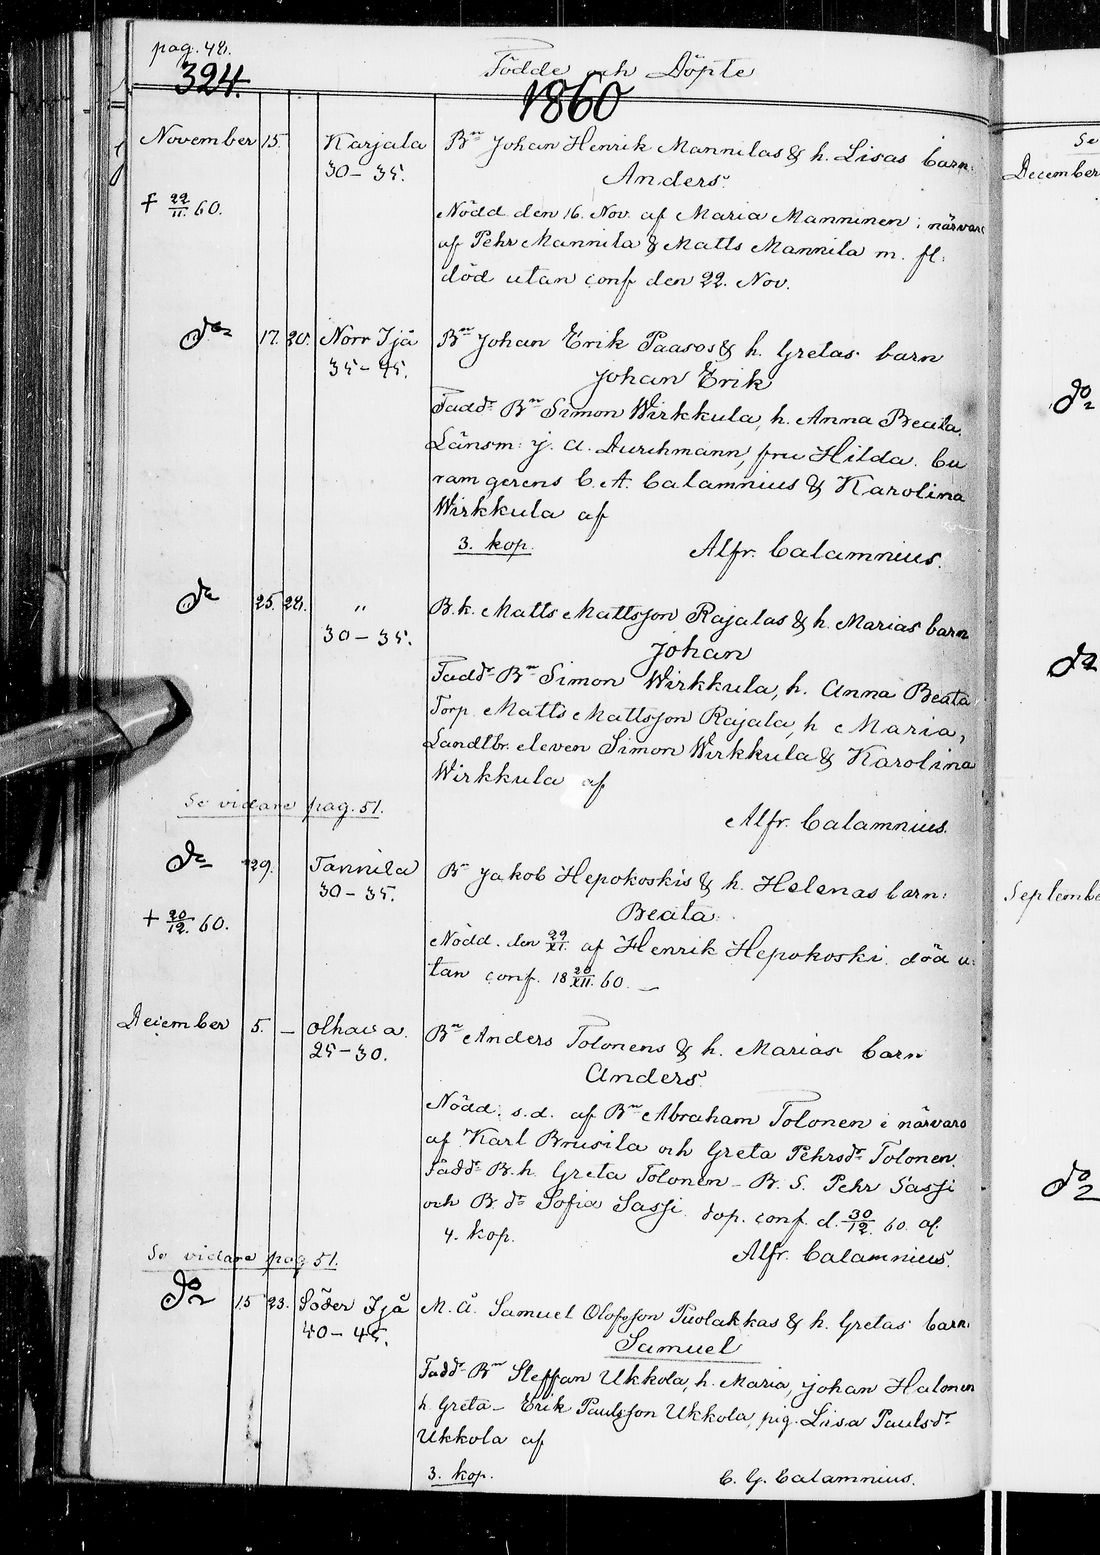 pag. 48.
324.
Födde och Döpte
1860
November 15. Karjala Bn Johan Henrik Mannilas & h. Lisas barn:
30-35. Anders.
† 22/11. 60. Nödd. den 16. Nov. af Maria Manninen i närvaro
af Pehr Mannila & Matts Mannila m. fl.
död utan conf den 22. Nov.
do 17. 20. Norr Ijå Bn Johan Erik Paasos & h. Gretas barn
35-45. Johan Erik
Fadd. Bn Simon Wirkkula, h. Anna Beata.
Länsm: J. A. Durchmann, fru Hilda. Cu
ram gerens C. A. Calamnius & Karolina
Wirkkula af
3. kop. Alfr. Calamnius.
do 25. 28. " B.k. Matts Mattsson Rajalas & h. Marias barn
30-35. Johan
Fadd. Bn Simon Wirkkula, h. Anna Beata
Torp. Matts Mattsson Rajala, h Maria,
Landtbr. eleven Simon Wirkkula & Karolina
Wirkkula af
Se vidare pag. 51.
Alfr. Calamnius.
do 29. Tannila Bn Jakob Hepokoskis & h. Helenas barn:
30-35. Beata.
† 20/12. 60. Nödd. den 29/XI. af Henrik Hepokoski. död u-
tan conf. 18 20/XII. 60.
December 5. - Olhava. Bn Anders Tolonens & h. Marias barn
25-30. Anders.
Nödd. s.d. af Bn Abraham Tolonen i närvaro
af Karl Brusila och Greta Pehrsdr Tolonen.
Fadd. B.h. Greta Tolonen - B. S. Pehr Sassi
och B. dr Sofia Sassi. dop. conf. d. 30/12. 60. af.
4. kop. Alfr. Calamnius.
Se vidare pag 51.
do 15 23. Söder Ijå M. Å. Samuel Olofsson Puolakkas & h. Gretas barn
40-45. Samuel
Fadd. Bn Steffan Ukkola, h. Maria, Johan Halonen
h. Greta- Erik Paulsson Ukkola, pig. Lisa Paulsdr
Ukkola af
3. kop. C. G. Calamnius.
Se
December
do
do
September
do